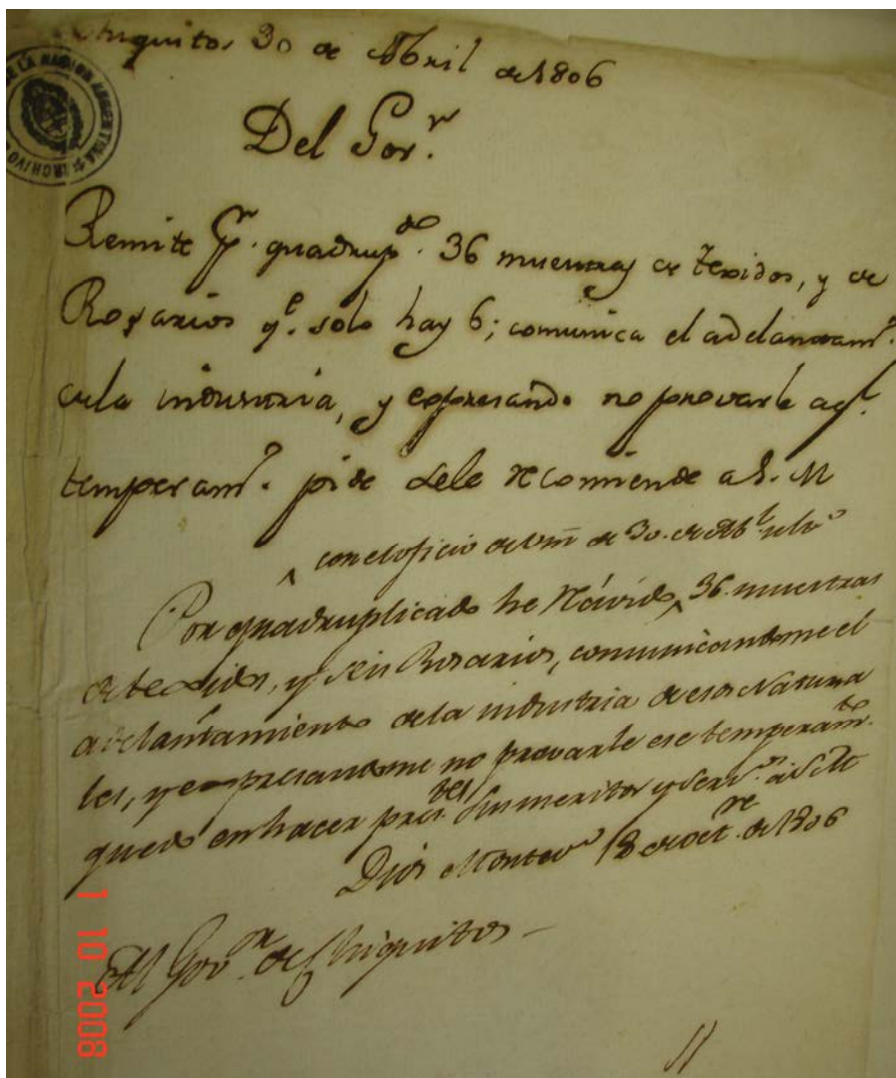 Chiquitos 30 de Abril de 1806
DE LA NACION ARGENTINA ARCHIVO
Del Gov.r
Remite Pr. quadrup.do 36 muestras de texidos, y de
Rosarios q.e solo hay 6; comunica el adelantam.to
de la industria, y expresando no provarle aq.l
temperam.to pide se le recomiende a S. M
con el oficio de Vm de 30. de Ab.l ulto
Por quadruplicado he recivido 36. muestras
de texidos, y seis Rosarios, comunicandome el
adelantamiento de la industria de esos Natura
les, y expresandome no provarle ese temperam.to
quedo en hacer pres.tes sus meritos y serv.os a S. M
Dios Montev.o 18 de oct.re de 1806
Al Gov.or de Chiquitos
1 10 2008